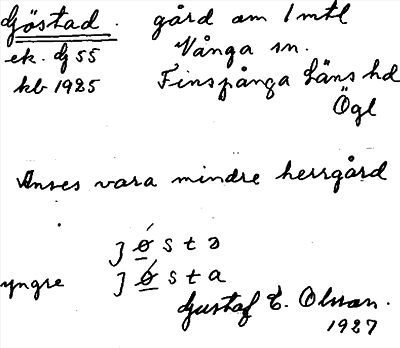 Göstad. gård om 1 mtl
ek. bl 55 Vånga sn.
kb 1925 Finspånga läns hd
Ögl
Anses vara mindre herrgård
j ǿ s t a
yngre j ǿ s t a
Gustaf E. Olsson.
1927